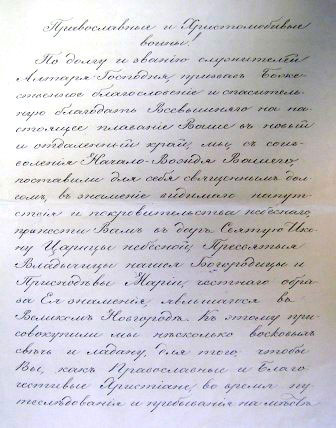 Православные и Христолюбивые
воины!
По долгу и званію служителей
Алтаря Господня, призвавъ Боже-
ственное благословеніе и спаситель-
ную благодать Всевышняго на на-
стоящее плаваніе Ваше въ новый
и отдаленный край, мы, съ соиз-
воленія Начало-Вождя Вашего,
поставили для себя священнымъ дол-
гомъ, въ знаменіе видимаго напут-
ствія и покровительства небеснаго,
принести Вамъ въ даръ Святую Ико-
ну Царицы небесной, Пресвятыя
Владычицы нашея Богородицы и
Приснодѣвы Маріи, честнаго обра-
за Ея знаменія, явльшагося въ
Великомъ Новгородѣ. Къ этому при-
совокупили мы нѣсколько восковыхъ
свѣчъ и ладану, для того чтобы
Вы, какъ Православные и благо-
честивые Христіане, во время пу-
тешествованія и пребыванія на мѣстѣ